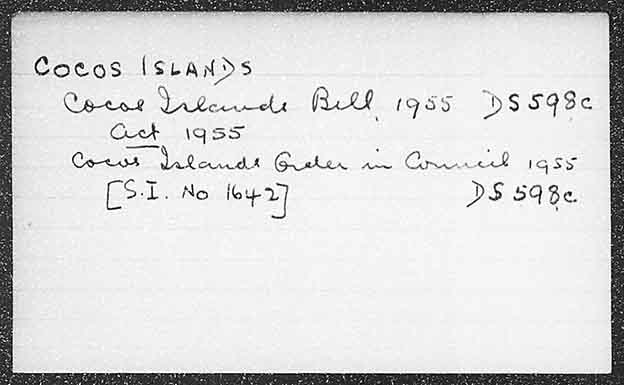 COCOS ISLANDS
Cocos Islands Bill, 1955 DS598c
Act 1955
Cocos Islands Order in Council 1955
[S.I. No 1642] DS598c.